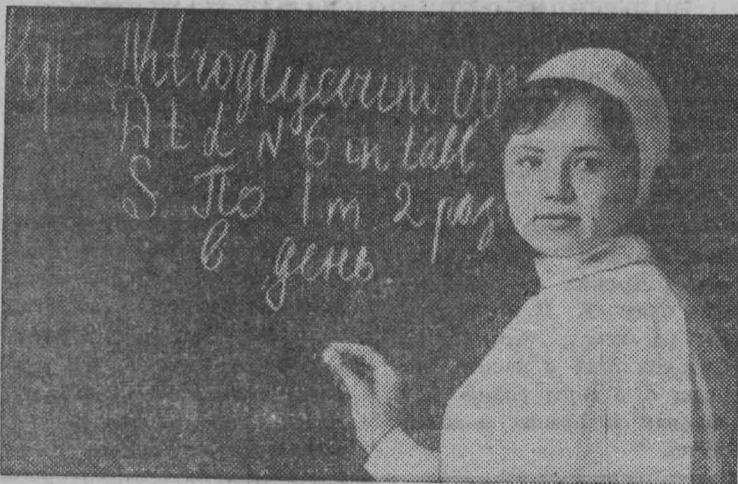 Nitroglycerini
D t d N 6 in tabl
S По 1 т 2 раз
в день